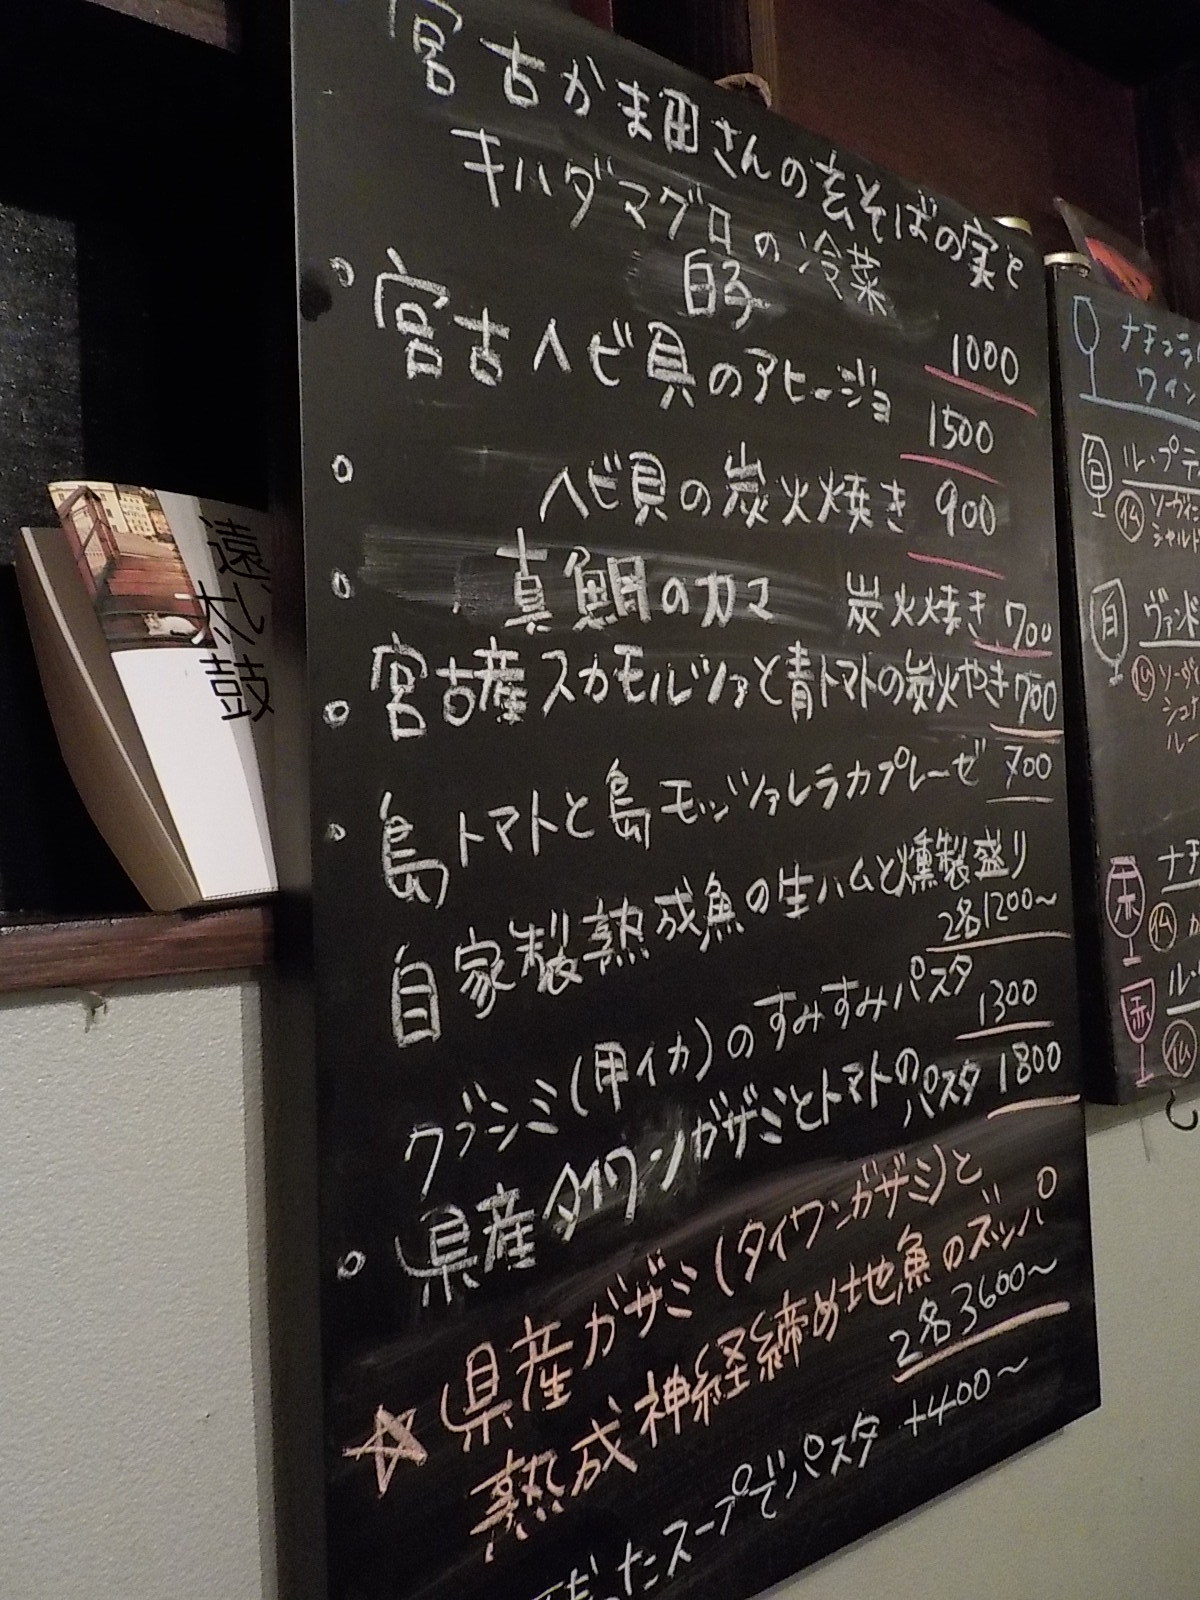 宮古かま田さんの玄そばの実と
キハダマグロの冷菜
白子
1000
宮古ヘビ貝のアヒージョ
1500
ヘビ貝の炭火焼き 900
真鯛のカマ 炭火焼き 700
宮古産スカモルツァと青トマトの炭火やき 700
島トマトと島モッツァレラカプレーゼ 700
自家製熟成魚の生ハムと燻製盛り
2名1200〜
クブシミ(甲イカ)のすみすみパスタ
1300
県産タイワンガザミとトマトの
パスタ 1800
☆県産ガザミ(タイワンガザミ)と
熟成神経締め地魚のズッパ
2名3600〜
たスープでパスタ +400〜
遠い太鼓
ワイン
白
ル・プテ
仏
白
仏
赤
仏
赤
ル・
仏